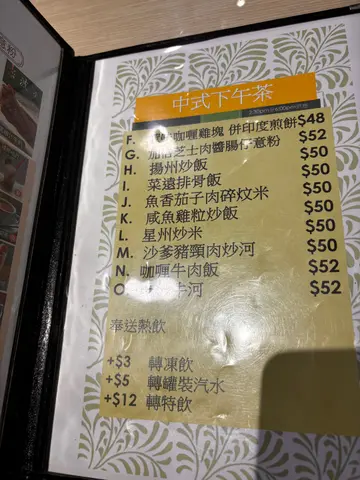 中式下午茶
2:30pm 6:00pm
F. 咖喱雞塊 併印度煎餅 $48
G. 加芝士肉醬腸仔意粉 $52
H. 揚州炒飯 $50
I. 菜遠排骨飯 $50
J. 魚香茄子肉碎炆米 $50
K. 咸魚雞粒炒飯 $50
L. 星州炒米 $50
M. 沙爹豬頸肉炒河 $50
N. 咖喱牛肉飯 $52
O. 河 $52
奉送熱飲
+$3 轉凍飲
+$5 轉罐裝汽水
+$12 轉特飲